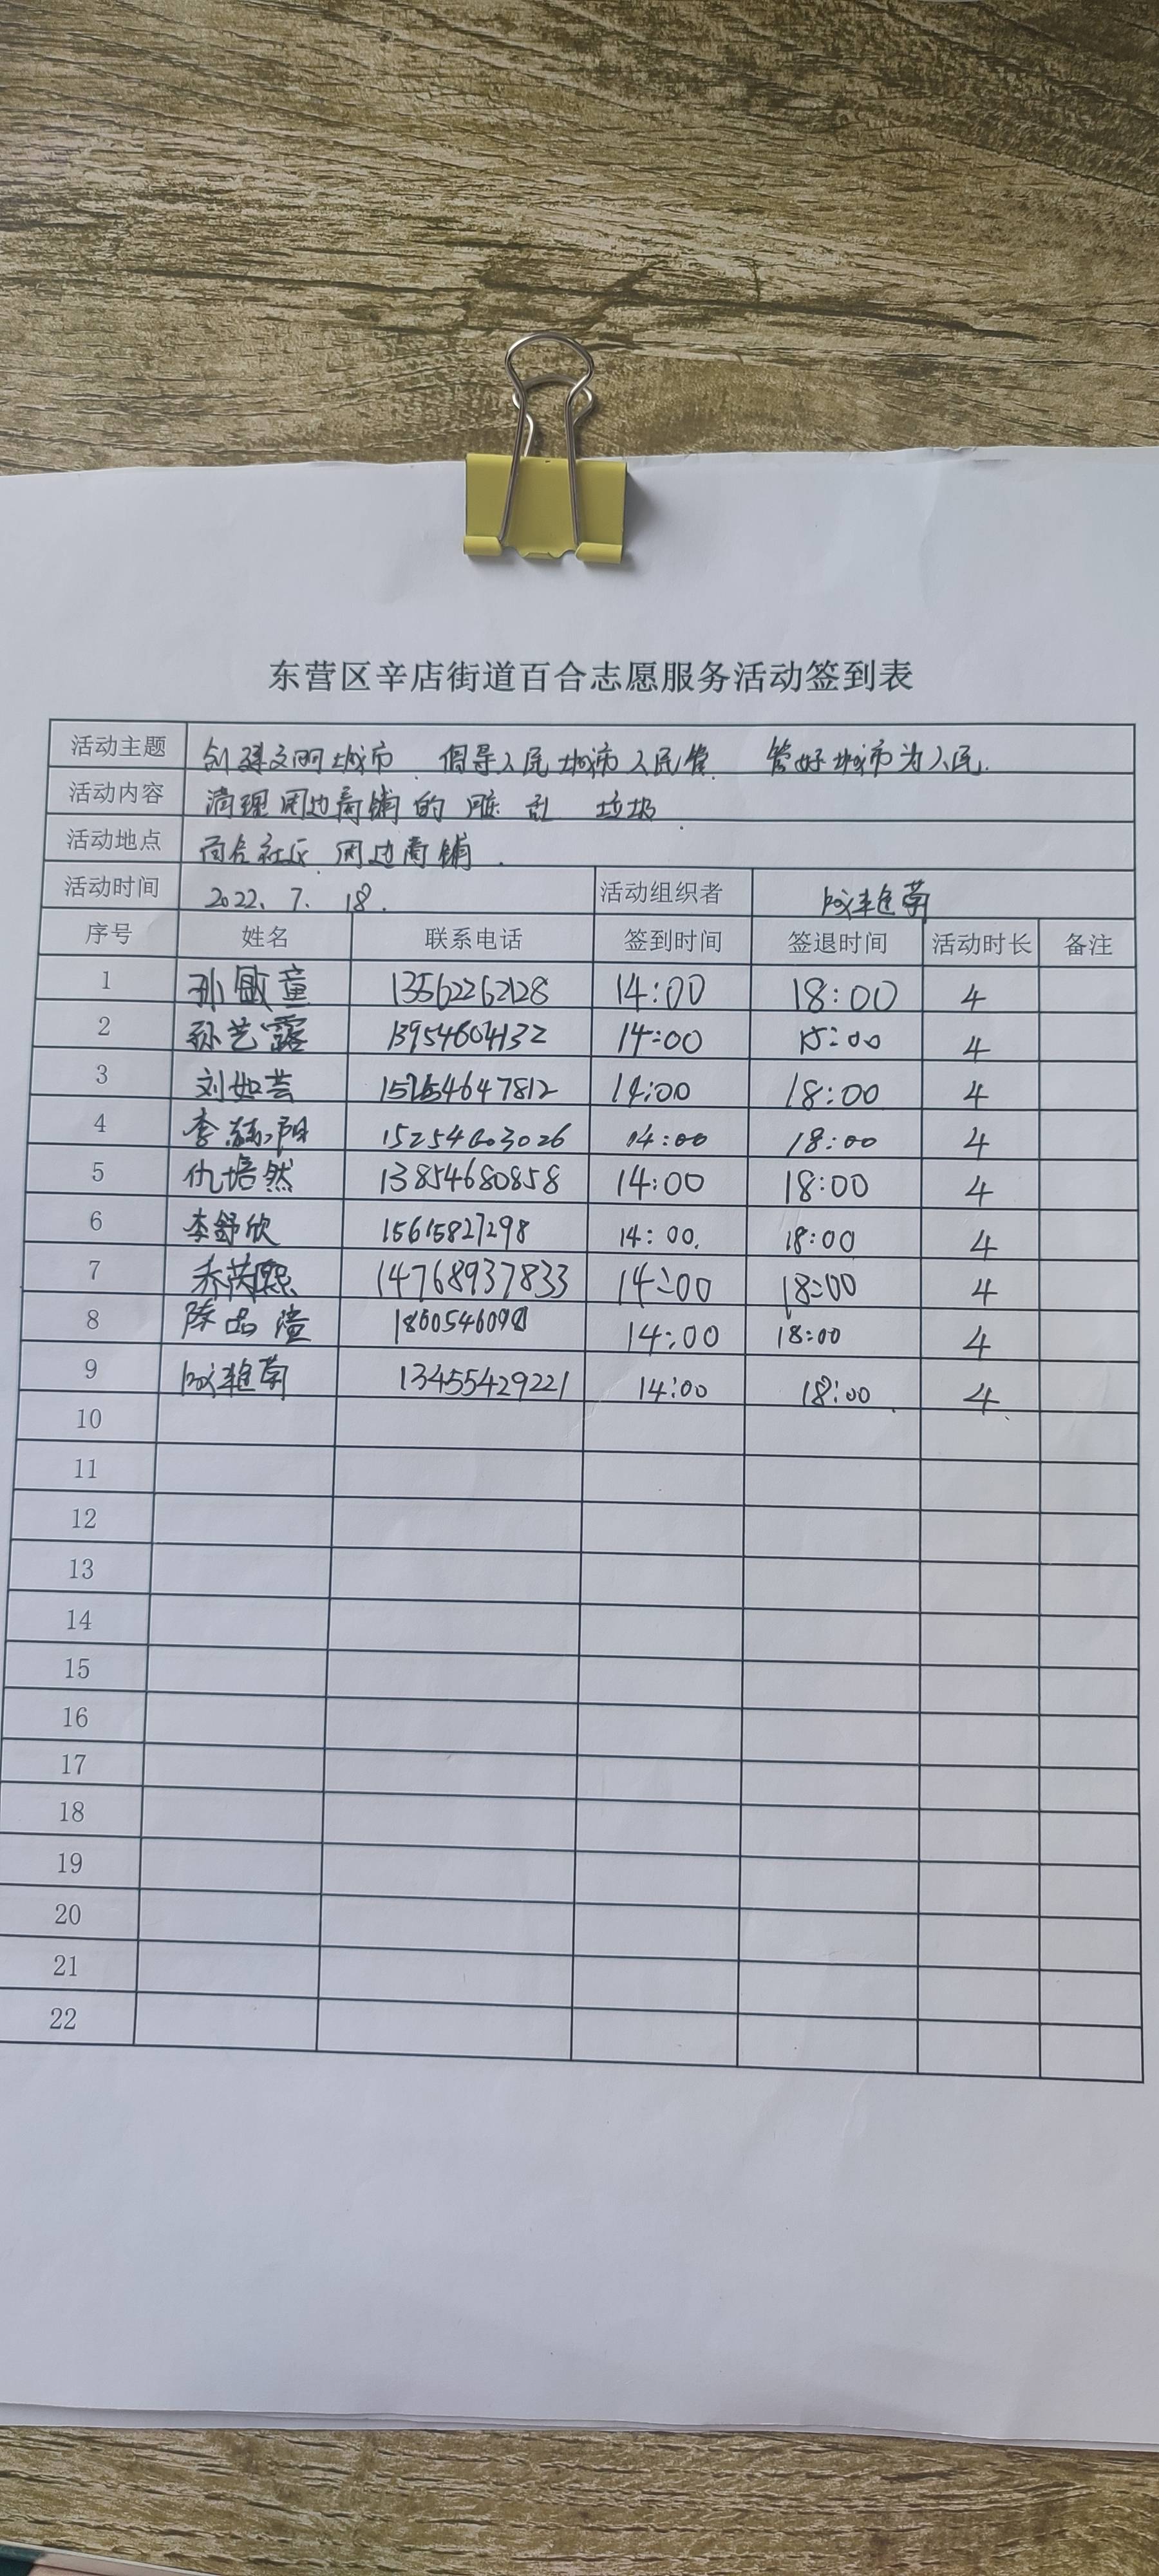 东营区辛店街道百合志愿服务活动签到表
活动主题 创建文明城市 倡导人民城市人民管 管好城市为人民.
活动内容 清理周边商铺的脏乱 垃圾.
活动地点 百合社区 周边商铺.
活动时间 2022、7、18. 活动组织者
序号 姓名 联系电话 签到时间 签退时间 活动时长 备注
1 孙敏童 13562262128 14:00 18:00 4
2 孙艺露 13954604132 14:00 4
3 刘如芸 14:00 18:00 4
4 李 阳 15254603026 14:00 18:00 4
5 仇培然 13854680858 14:00 18:00 4
6 李舒欣 15615827298 14:00. 18:00 4
7 14768937833 14:00 18:00 4
8 陈 14:00 18:00 4
9 13455429221 14:00 18:00. 4.
10
11
12
13
14
15
16
17
18
19
20
21
22